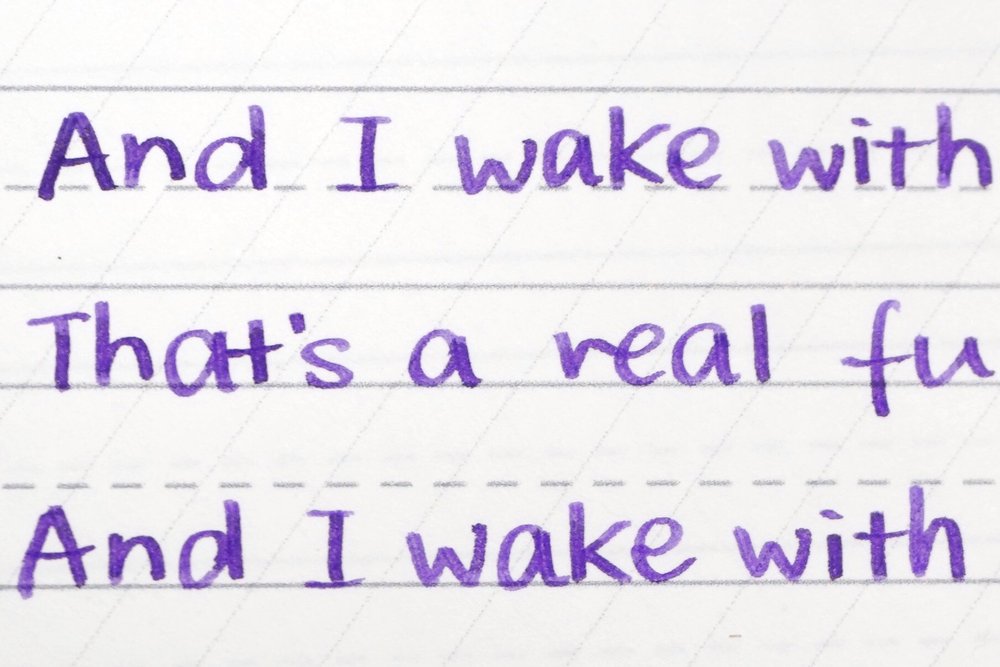 And I wake with
That's a real fu
And I wake with